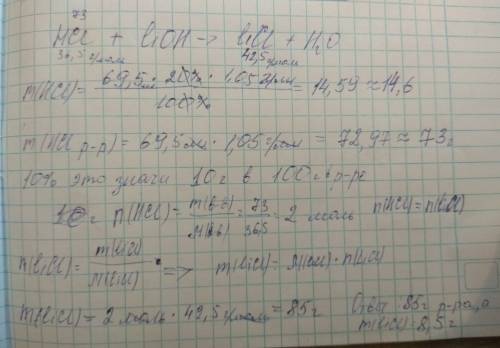 73
HCl + LiOH → LiCl + H₂O
36,5 г/моль 42,5 г/моль
m(HCl) = 69,5 мл · 20% · 1,05 г/мл / 100% = 14,59 ≈ 14,6
m(HCl р-р) = 69,5 мл · 1,05 г/мл = 72,97 ≈ 73г
10% это значи 10г в 100г р-ре
10г n(HCl) = m(в-в)/M(вв) = 73/36,5 = 2 моль n(HCl) = n(LiCl)
n(LiCl) = m(LiCl)/M(LiCl) => m(LiCl) = M(LiCl) · n(LiCl)
m(LiCl) = 2 моль · 42,5 г/моль = 85г Ответ 85г р-ра, а
m(LiCl) 8,5г